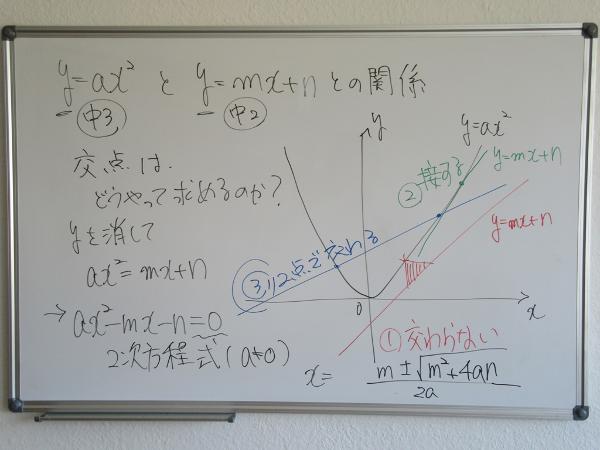 y=ax² と y=mx+nとの関係
中3 中2
交点は.
どうやって求めるのか?
yを消して
ax²=mx+n
→ ax²-mx-n=0
2次方程式(a≠0)
x= m±√m²+4an
2a
y
x
0
y=ax²
y=mx+n
② 接する
y=mx+n
2点で交わる
① 交わらない